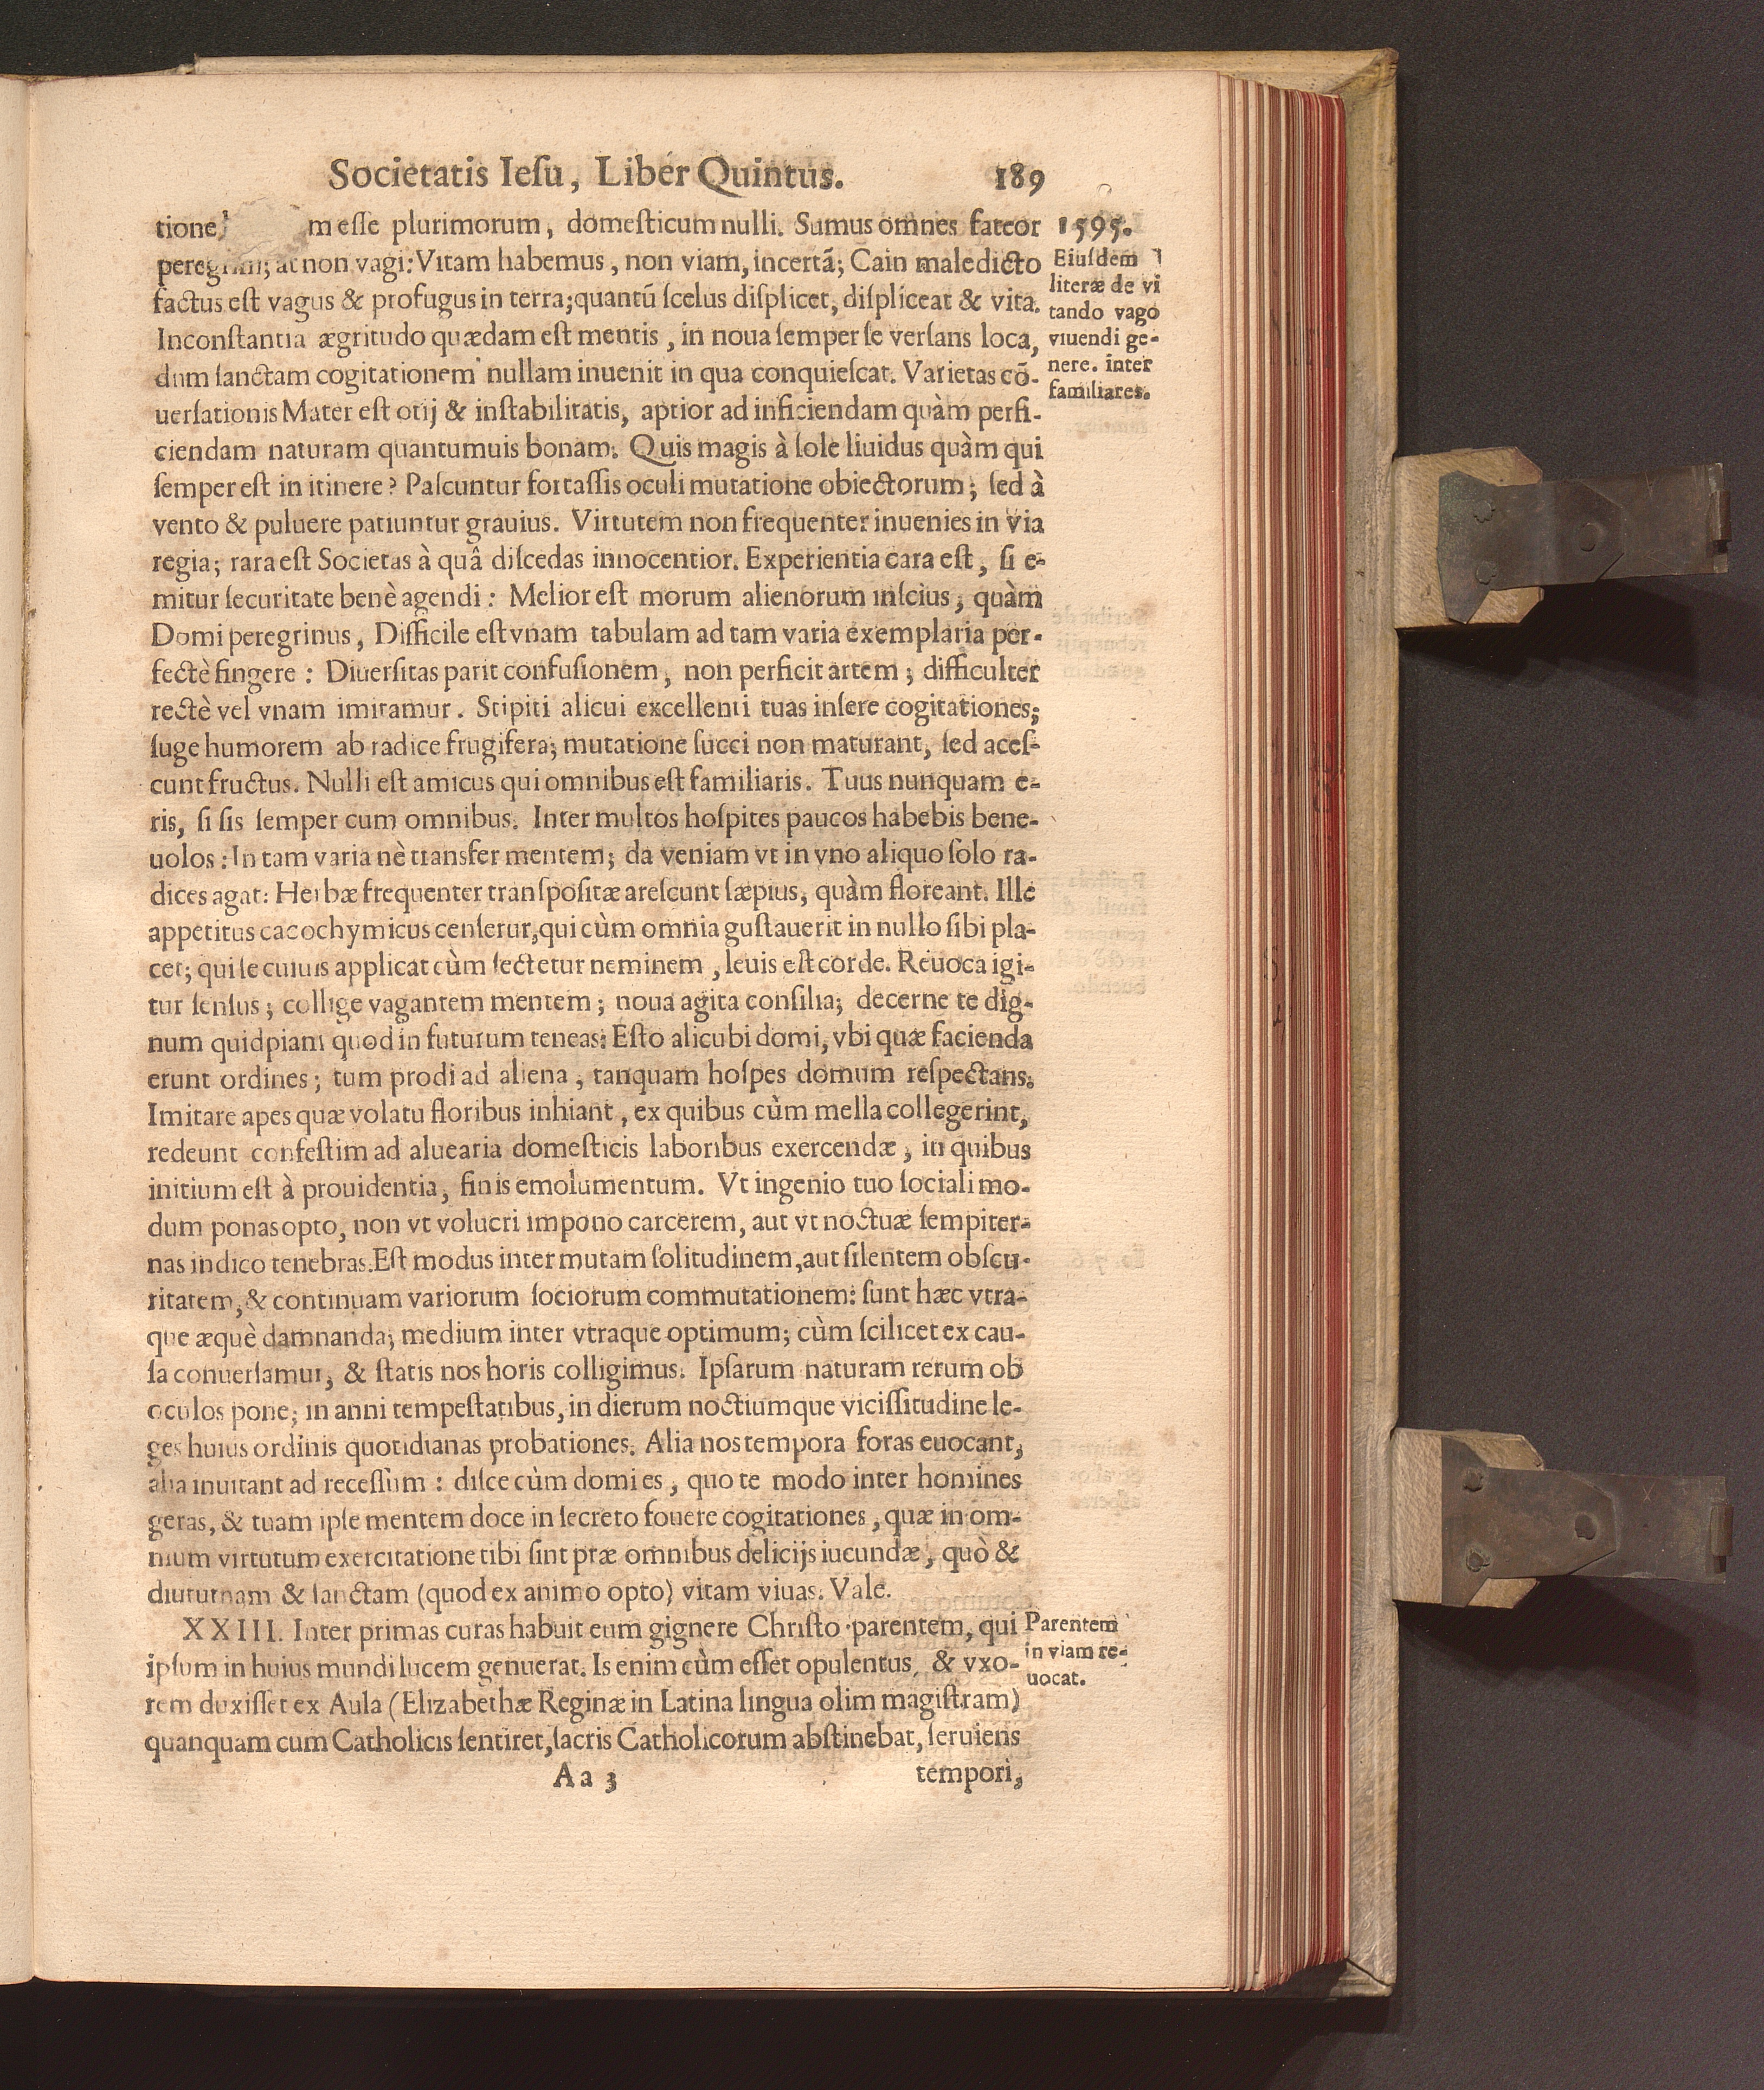 Societatis Iesu, Liber Quintus. 189
tione m esse plurimorum, domesticum nulli. Sumus omnes fateor
peregrini; at non vagi: Vitam habemus, non viam, incertã; Cain maledicto
factus est vagus & profugus in terra; quantũ scelus displicet, displiceat & vita.
Inconstantia ægritudo quædam est mentis, in noua semper se versans loca,
dum sanctam cogitationem nullam inuenit in qua conquiescat. Varietas cõ-
uersationis Mater est otij & instabilitatis, aptior ad inficiendam quàm perfi-
ciendam naturam quantumuis bonam. Quis magis à sole liuidus quàm qui
semper est in itinere? Pascuntur fortassis oculi mutatione obiectorum; sed à
vento & puluere patiuntur grauius. Virtutem non frequenter inuenies in via
regia; rara est Societas à quâ discedas innocentior. Experientia cara est, si e-
mitur securitate benè agendi: Melior est morum alienorum inscius, quàm
Domi peregrinus, Difficile est vnam tabulam ad tam varia exemplaria per-
fectè fingere: Diuersitas parit confusionem, non perficit artem; difficulter
rectè vel vnam imitamur. Stipiti alicui excellenti tuas insere cogitationes;
suge humorem ab radice frugifera; mutatione succi non maturant, sed aces-
cunt fructus. Nulli est amicus qui omnibus est familiaris. Tuus nunquam e-
ris, si sis semper cum omnibus. Inter multos hospites paucos habebis bene-
uolos: In tam varia nè transfer mentem; da veniam vt in vno aliquo solo ra-
dices agat: Herbæ frequenter transpositæ arescunt sæpius, quàm floreant. Ille
appetitus cacochymicus censetur, qui cùm omnia gustauerit in nullo sibi pla-
cet; qui se cuiuis applicat cùm sectetur neminem, leuis est corde. Reuoca igi-
tur sensus; collige vagantem mentem; noua agita consilia; decerne te dig-
num quidpiam quod in futurum teneas: Esto alicubi domi, vbi quæ facienda
erunt ordines; tum prodi ad aliena, tanquam hospes domum respectans.
Imitare apes quæ volatu floribus inhiant, ex quibus cùm mella collegerint,
redeunt confestim ad aluearia domesticis laboribus exercendæ, in quibus
initium est à prouidentia, finis emolumentum. Vt ingenio tuo sociali mo-
dum ponas opto, non vt volucri impono carcerem, aut vt noctuæ sempiter-
nas indico tenebras. Est modus inter mutam solitudinem, aut silentem obscu-
ritatem, & continuam variorum sociorum commutationem: sunt hæc vtra-
que æquè damnanda; medium inter vtraque optimum; cùm scilicet ex cau-
sa conuersamur, & statis nos horis colligimus. Ipsarum naturam rerum ob
oculos pone; in anni tempestatibus, in dierum noctiumque vicissitudine le-
ges huius ordinis quotidianas probationes. Alia nos tempora foras euocant,
alia inuitant ad recessùm: disce cùm domi es, quo te modo inter homines
geras, & tuam ipse mentem doce in secreto fouere cogitationes, quæ in om-
nium virtutum exercitatione tibi sint præ omnibus delicijs iucundæ, quò &
diuturnam & sanctam (quod ex animo opto) vitam viuas. Vale.
XXIII. Inter primas curas habuit eum gignere Christo parentem, qui
ipsum in huius mundi lucem genuerat. Is enim cùm esset opulentus, & vxo-
rem duxisset ex Aula (Elizabethæ Reginæ in Latina lingua olim magistram)
quanquam cum Catholicis sentiret, sacris Catholicorum abstinebat, seruiens
Aa 3 tempori,
1595.
Eiusdem
literæ de vi
tando vago
viuendi ge-
nere. inter
familiares.
Parentem
in viam re-
uocat.